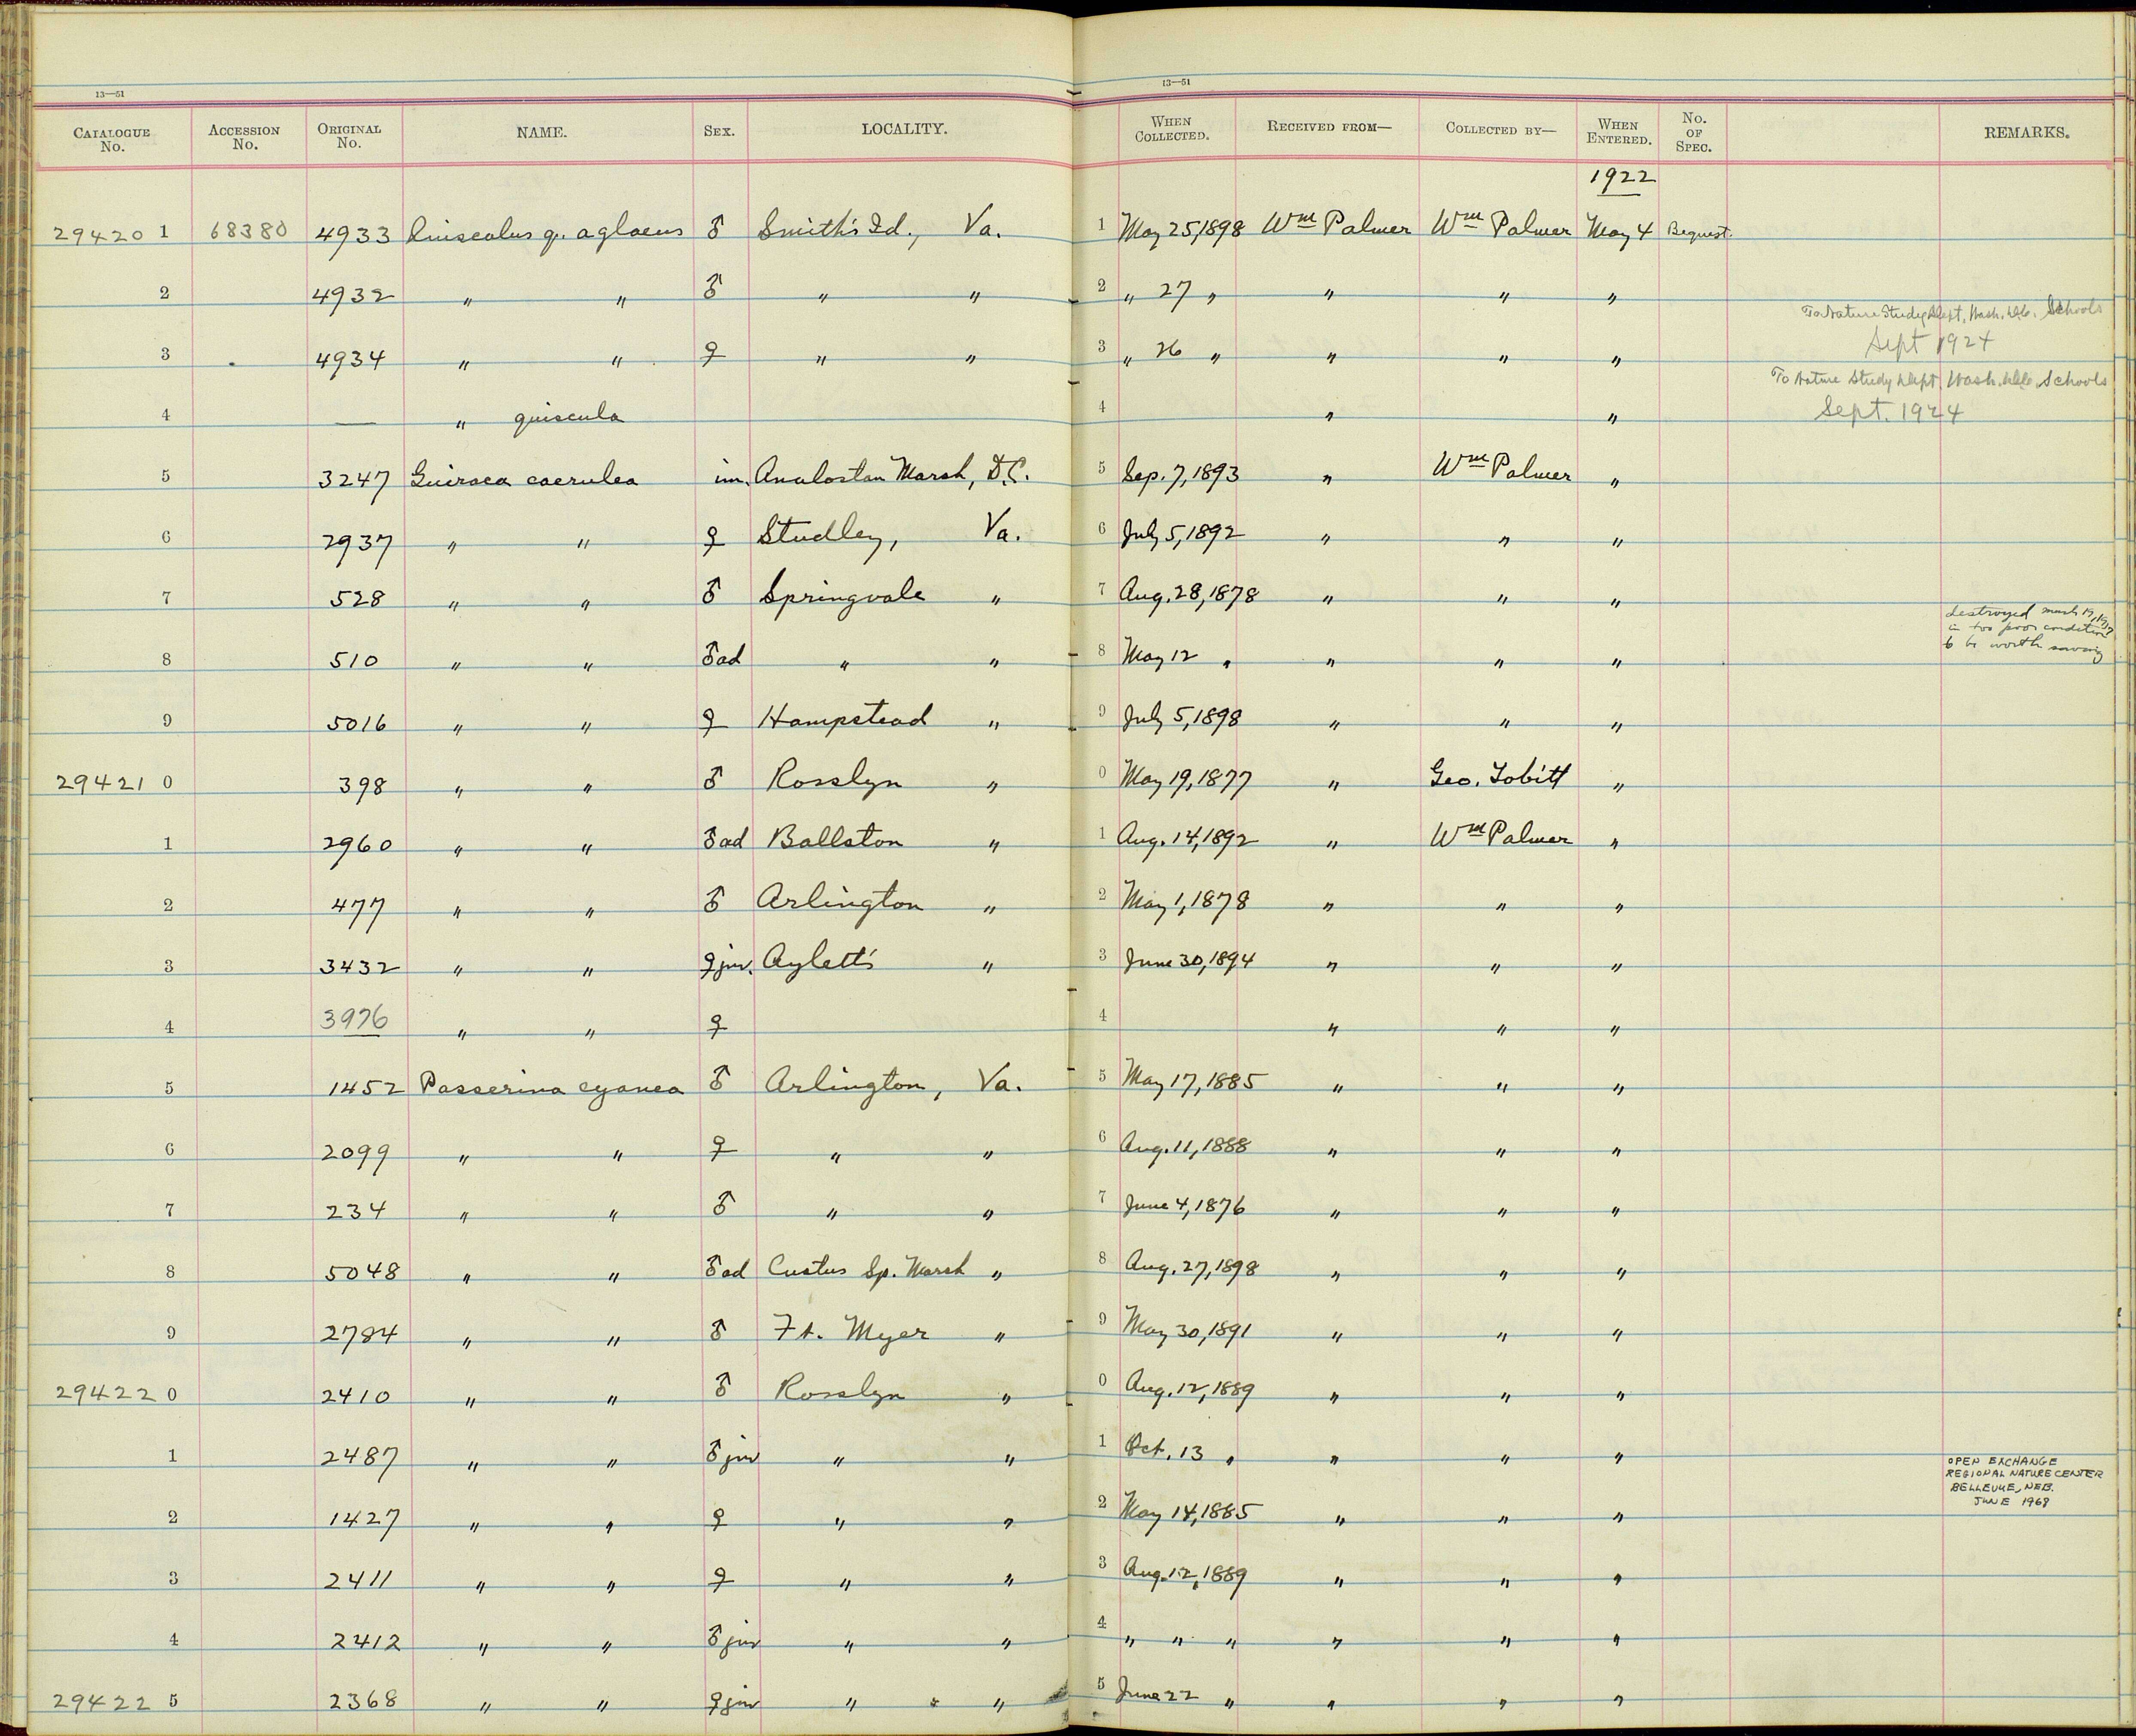 13—51 13—51
CATALOGUE No. ACCESSION No. ORIGINAL No. NAME. SEX. LOCALITY. WHEN COLLECTED. RECEIVED FROM— COLLECTED BY— WHEN ENTERED. No. OF SPEC. REMARKS.
1922
29420 1 68380 4933 Quiscalus q. aglaeus ♂ Smith's Id., Va. 1 May 25, 1898 Wm Palmer Wm Palmer May 4 Bequest.
2 4932 " " ♂ " " 2 " 27 " " " "
To Nature Study Dept, Wash. D.C. Schools
Sept 1924
3 4934 " " ♀ " " 3 " 26 " " " "
To Nature Study Dept, Wash. D.C. Schools
Sept. 1924
4 — " quiscula 4 " "
5 3247 Guiraca caerulea im. Analostan Marsh, D.C. 5 Sep. 7, 1893 " Wm Palmer "
6 2937 " " ♀ Studley, Va. 6 July 5, 1892 " " "
7 528 " " ♂ Springvale " 7 Aug. 28, 1878 " " "
destroyed March 19,
in too poor condition
to be worth saving
8 510 " " ♂ad " " 8 May 12 " " " "
9 5016 " " ♀ Hampstead " 9 July 5, 1898 " " "
29421 0 398 " " ♂ Rosslyn " 0 May 19, 1877 " Geo. Tobitt "
1 2960 " " ♂ad Ballston " 1 Aug. 14, 1892 " Wm Palmer "
2 477 " " ♂ Arlington " 2 May 1, 1878 " " "
3 3432 " " ♀juv. Aylett's " 3 June 30, 1894 " " "
4 3976 " " ♀ 4 " " "
5 1452 Passerina cyanea ♂ Arlington, Va. 5 May 17, 1885 " " "
6 2099 " " ♀ " " 6 Aug. 11, 1888 " " "
7 234 " " ♂ " " 7 June 4, 1876 " " "
8 5048 " " ♂ad Custus Sp. Marsh " 8 Aug. 27, 1898 " " "
9 2784 " " ♂ Ft. Myer " 9 May 30, 1891 " " "
29422 0 2410 " " ♂ Rosslyn " 0 Aug. 12, 1889 " " "
1 2487 " " ♂juv " " 1 Oct. 13 " " " "
OPEN EXCHANGE
REGIONAL NATURE CENTER
BELLEVUE, NEB.
JUNE 1968
2 1427 " " ♀ " " 2 May 14, 1885 " " "
3 2411 " " ♀ " " 3 Aug. 12, 1889 " " "
4 2412 " " ♂juv " " 4 " " " " " "
29422 5 2368 " " ♀juv " " " 5 June 22 " " " "